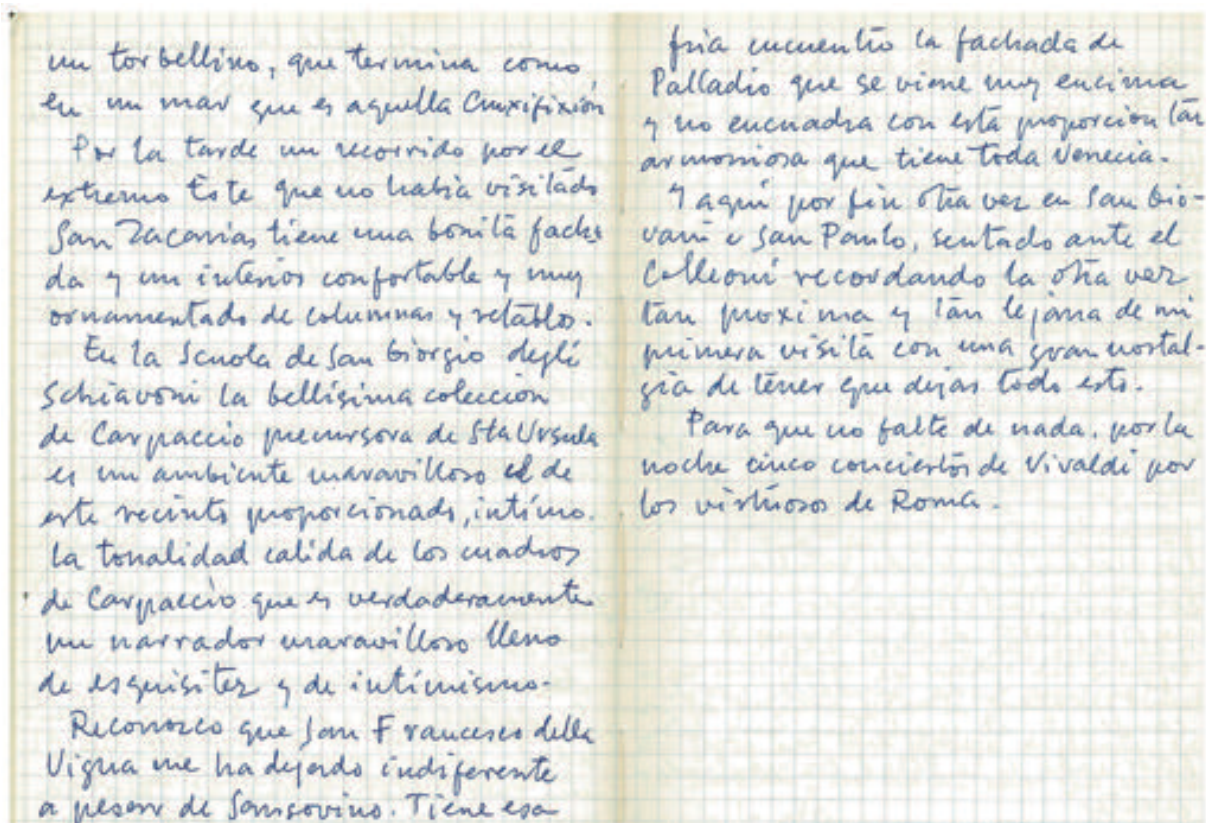 un torbellino, que termina como
en un mar que es aquella Cruxifixión
Por la tarde un recorrido por el
extremo Este que no habia visitado
San Zacarias tiene una bonita facha
da y un interior confortable y muy
ornamentado de columnas y retablos.
En la Scuola de San Giorgio degli
Schiavoni la bellisima coleccion
de Carpaccio precursora de Sta Ursula
es un ambiente maravilloso el de
este recinto proporcionado, intimo.
La tonalidad calida de los cuadros
de Carpaccio que es verdaderamente
un narrador maravilloso lleno
de esquisitez y de intimismo.
Reconozco que San Francesco della
Vigna me ha dejado indiferente
a pesar de Sansovino. Tiene esa
fria encuentro la fachada de
Palladio que se viene muy encima
y no encuadra con esta proporcion tan
armoniosa que tiene toda Venecia.
Y aqui por fin otra vez en San Gio-
vani e San Paulo, sentado ante el
Colleoni recordando la otra vez
tan proxima y tan lejana de mi
primera visita con una gran nostal-
gia de tener que dejar todo esto.
Para que no falte de nada, por la
noche cinco conciertos de Vivaldi por
los virtuosos de Roma.